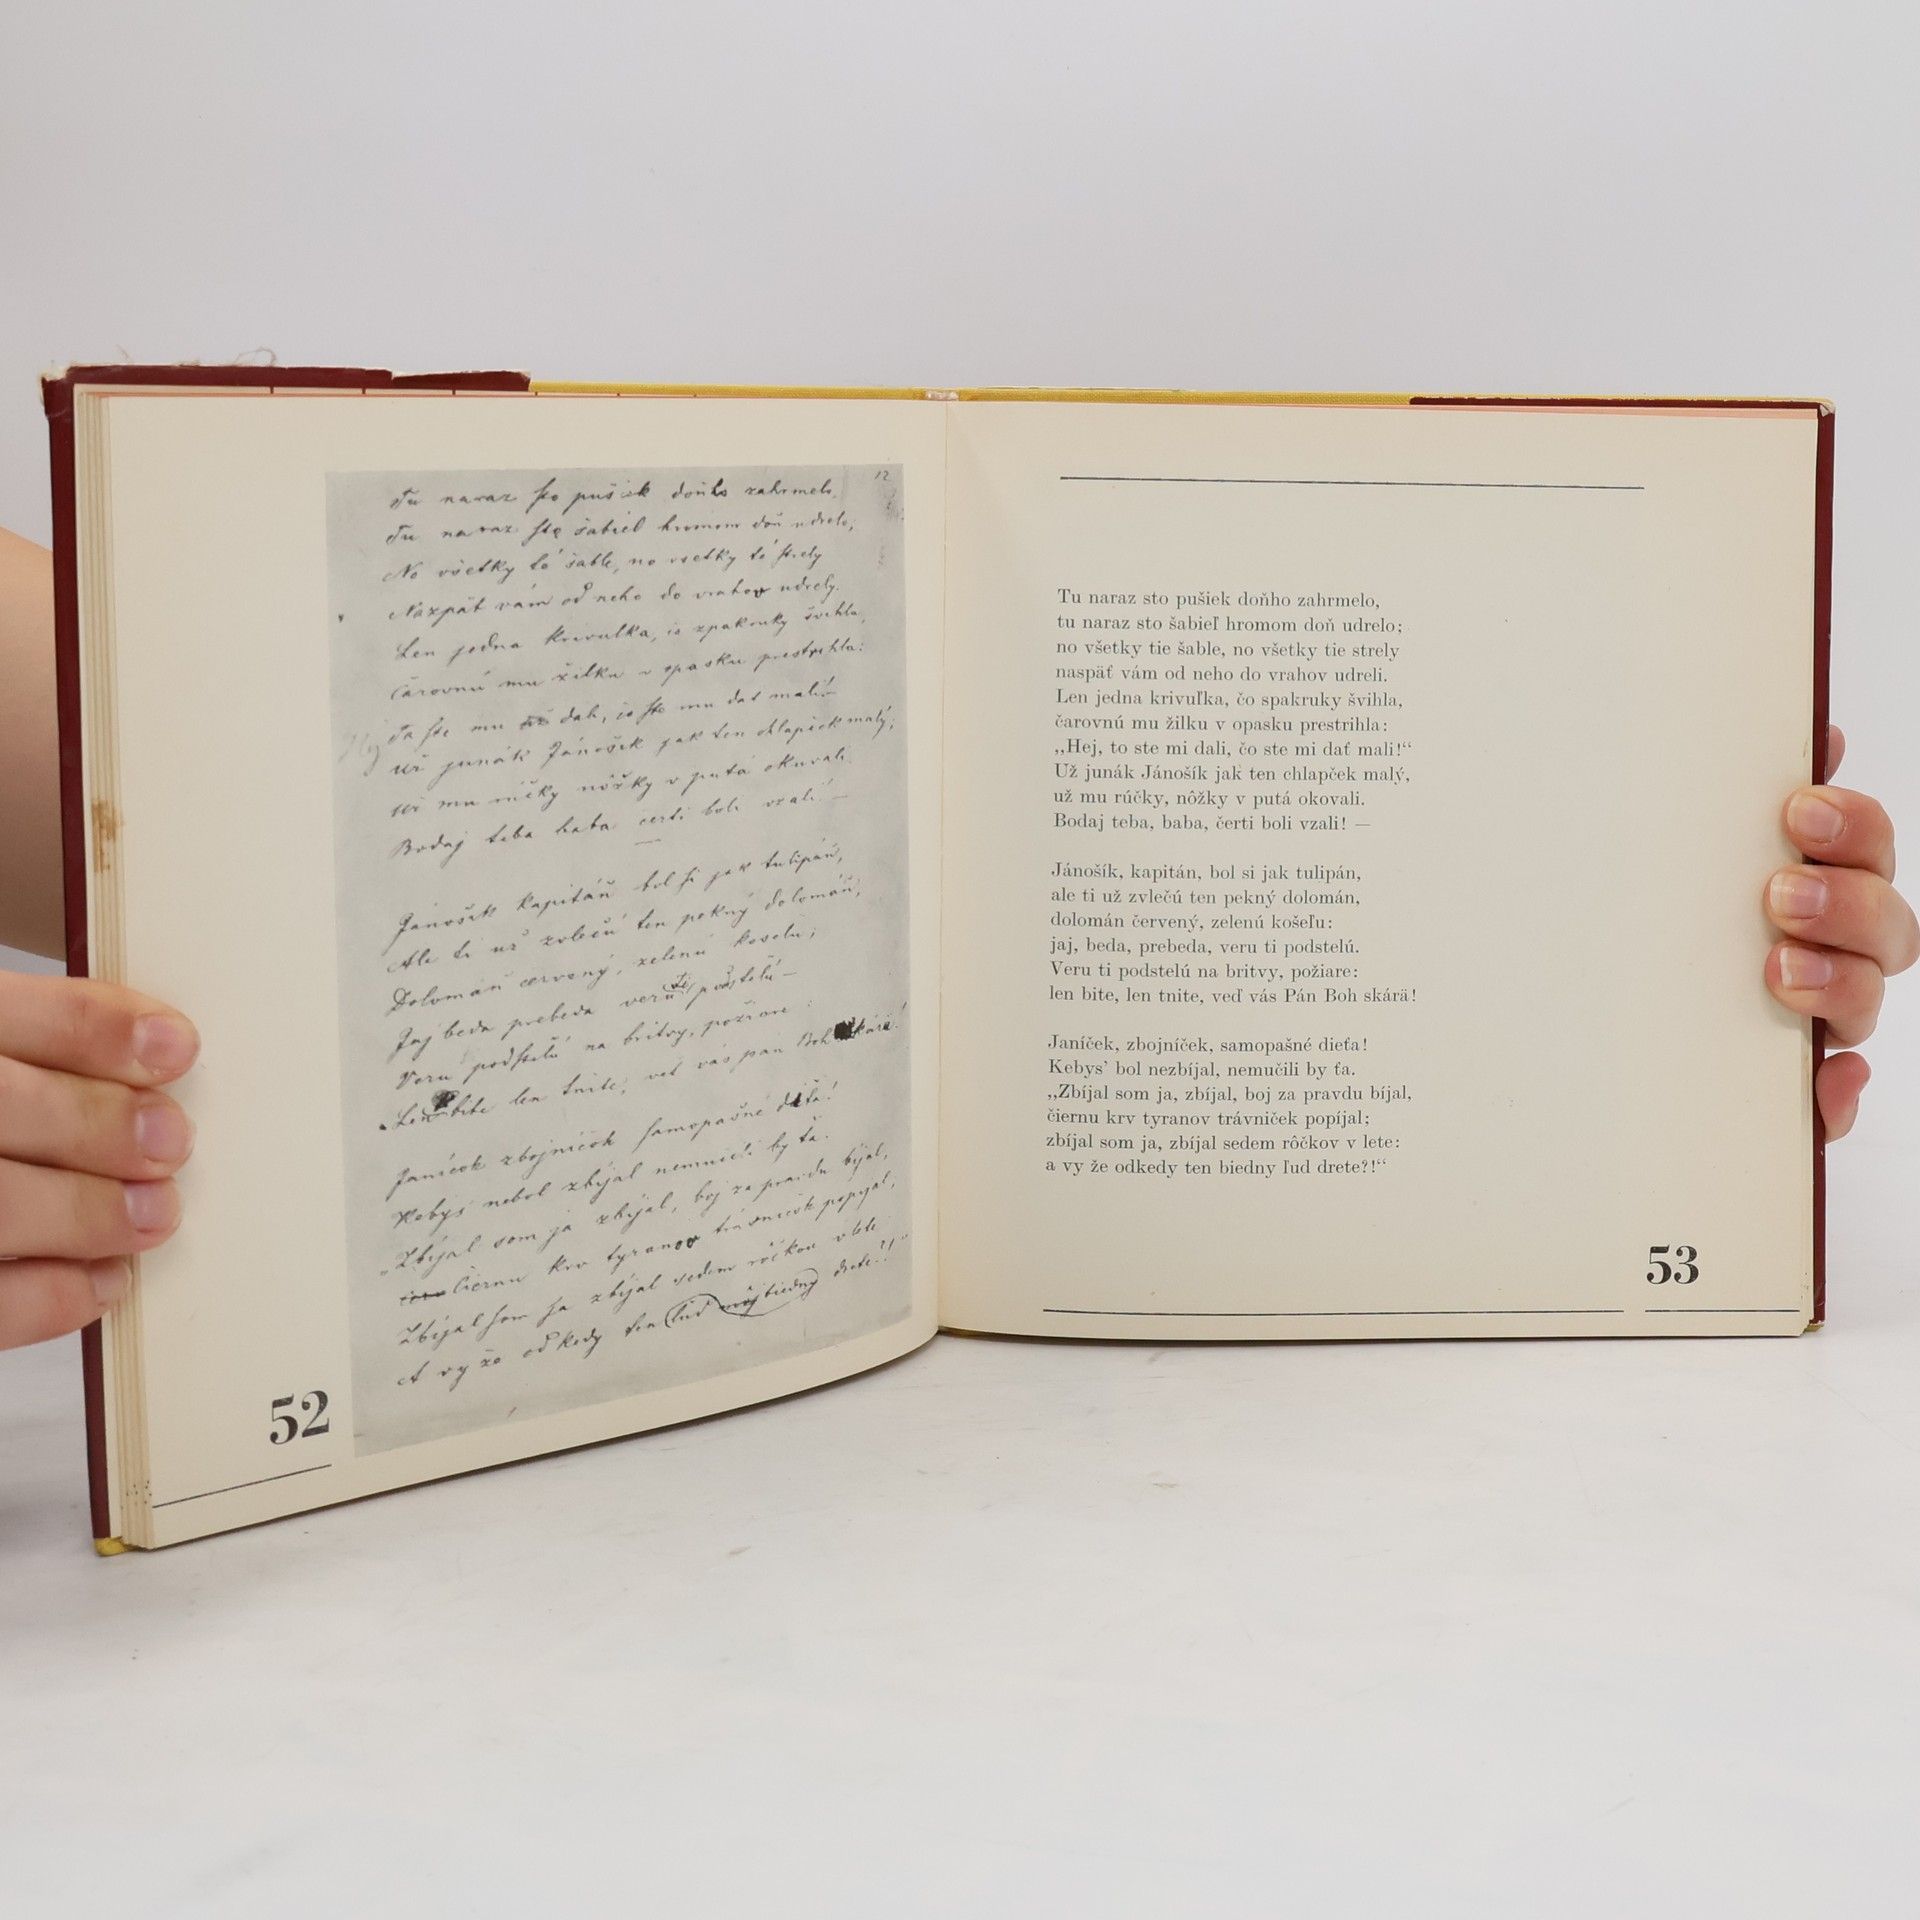 12
Tu naraz sto pušiek doňho zahrmelo,
Tu naraz sto šabiel hromom doň udrelo;
No všetky té šable, no vsetky té strely
Nazpät vám od neho do vrahov udrely.
Len jedna krivulka, čo zpakruky švihla,
Čarovnú mu žilku v opasku prestrihla:
Ta ste mu dali, čo ste mu dat mali! —
Už junák Jánošík jak ten chlapček malý;
Už mu rúčky nôžky v putá okuvali.
Bodaj teba baba čerti boli vzali! —
Jánošík kapitáň bol si jak tulipáň,
Ale ti už zvlečú ten pekný dolomáň,
Dolomáň červený, zelenú košelu;
Jaj beda prebeda veru ti podstelú —
Veru podstelú na britvy, požiare:
Len bite len tnite, veť vás pán Boh skárä!
Janíčok zbojníčok samopašné dieťa!
Kebys nebol zbíjal nemučili by ťa.
„Zbíjal som ja zbíjal, boj za pravdu bíjal,
Čiernu krv tyranov trávničok popíjal;
Zbíjal som ja zbíjal sedem rôčkov v lete
A vy že od kedy ten ľud môj biedny drete?!“
52
Tu naraz sto pušiek doňho zahrmelo,
tu naraz sto šabieľ hromom doň udrelo;
no všetky tie šable, no všetky tie strely
naspäť vám od neho do vrahov udreli.
Len jedna krivuľka, čo spakruky švihla,
čarovnú mu žilku v opasku prestrihla:
„Hej, to ste mi dali, čo ste mi dať mali!“
Už junák Jánošík jak ten chlapček malý,
už mu rúčky, nôžky v putá okovali.
Bodaj teba, baba, čerti boli vzali! —
Jánošík, kapitán, bol si jak tulipán,
ale ti už zvlečú ten pekný dolomán,
dolomán červený, zelenú košeľu:
jaj, beda, prebeda, veru ti podstelú.
Veru ti podstelú na britvy, požiare:
len bite, len tnite, veď vás Pán Boh skárä!
Janíček, zbojníček, samopašné dieťa!
Kebys’ bol nezbíjal, nemučili by ťa.
„Zbíjal som ja, zbíjal, boj za pravdu bíjal,
čiernu krv tyranov trávniček popíjal;
zbíjal som ja, zbíjal sedem rôčkov v lete:
a vy že odkedy ten biedny ľud drete?!“
53